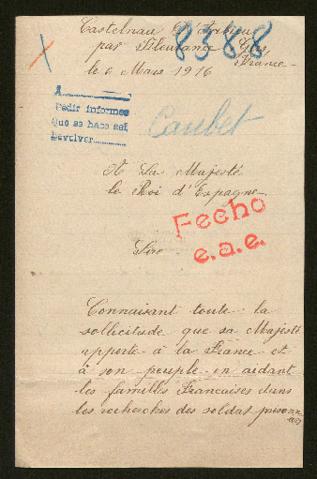 Castelnau d'Arbieu
8388
par Fleurance Gers
France
le 6 Mars 1916
A
Pedir informes
Que se hace así
Devolver
Caubet
A Sa Majesté
le Roi d'Espagne
Fecho
e.a.e.
Sire
Connaisant toute la
sollicitude que sa Majesté
apporte à la France et
à son peuple en aidant
les familles Francaises dans
les recherches des soldat prisonniers